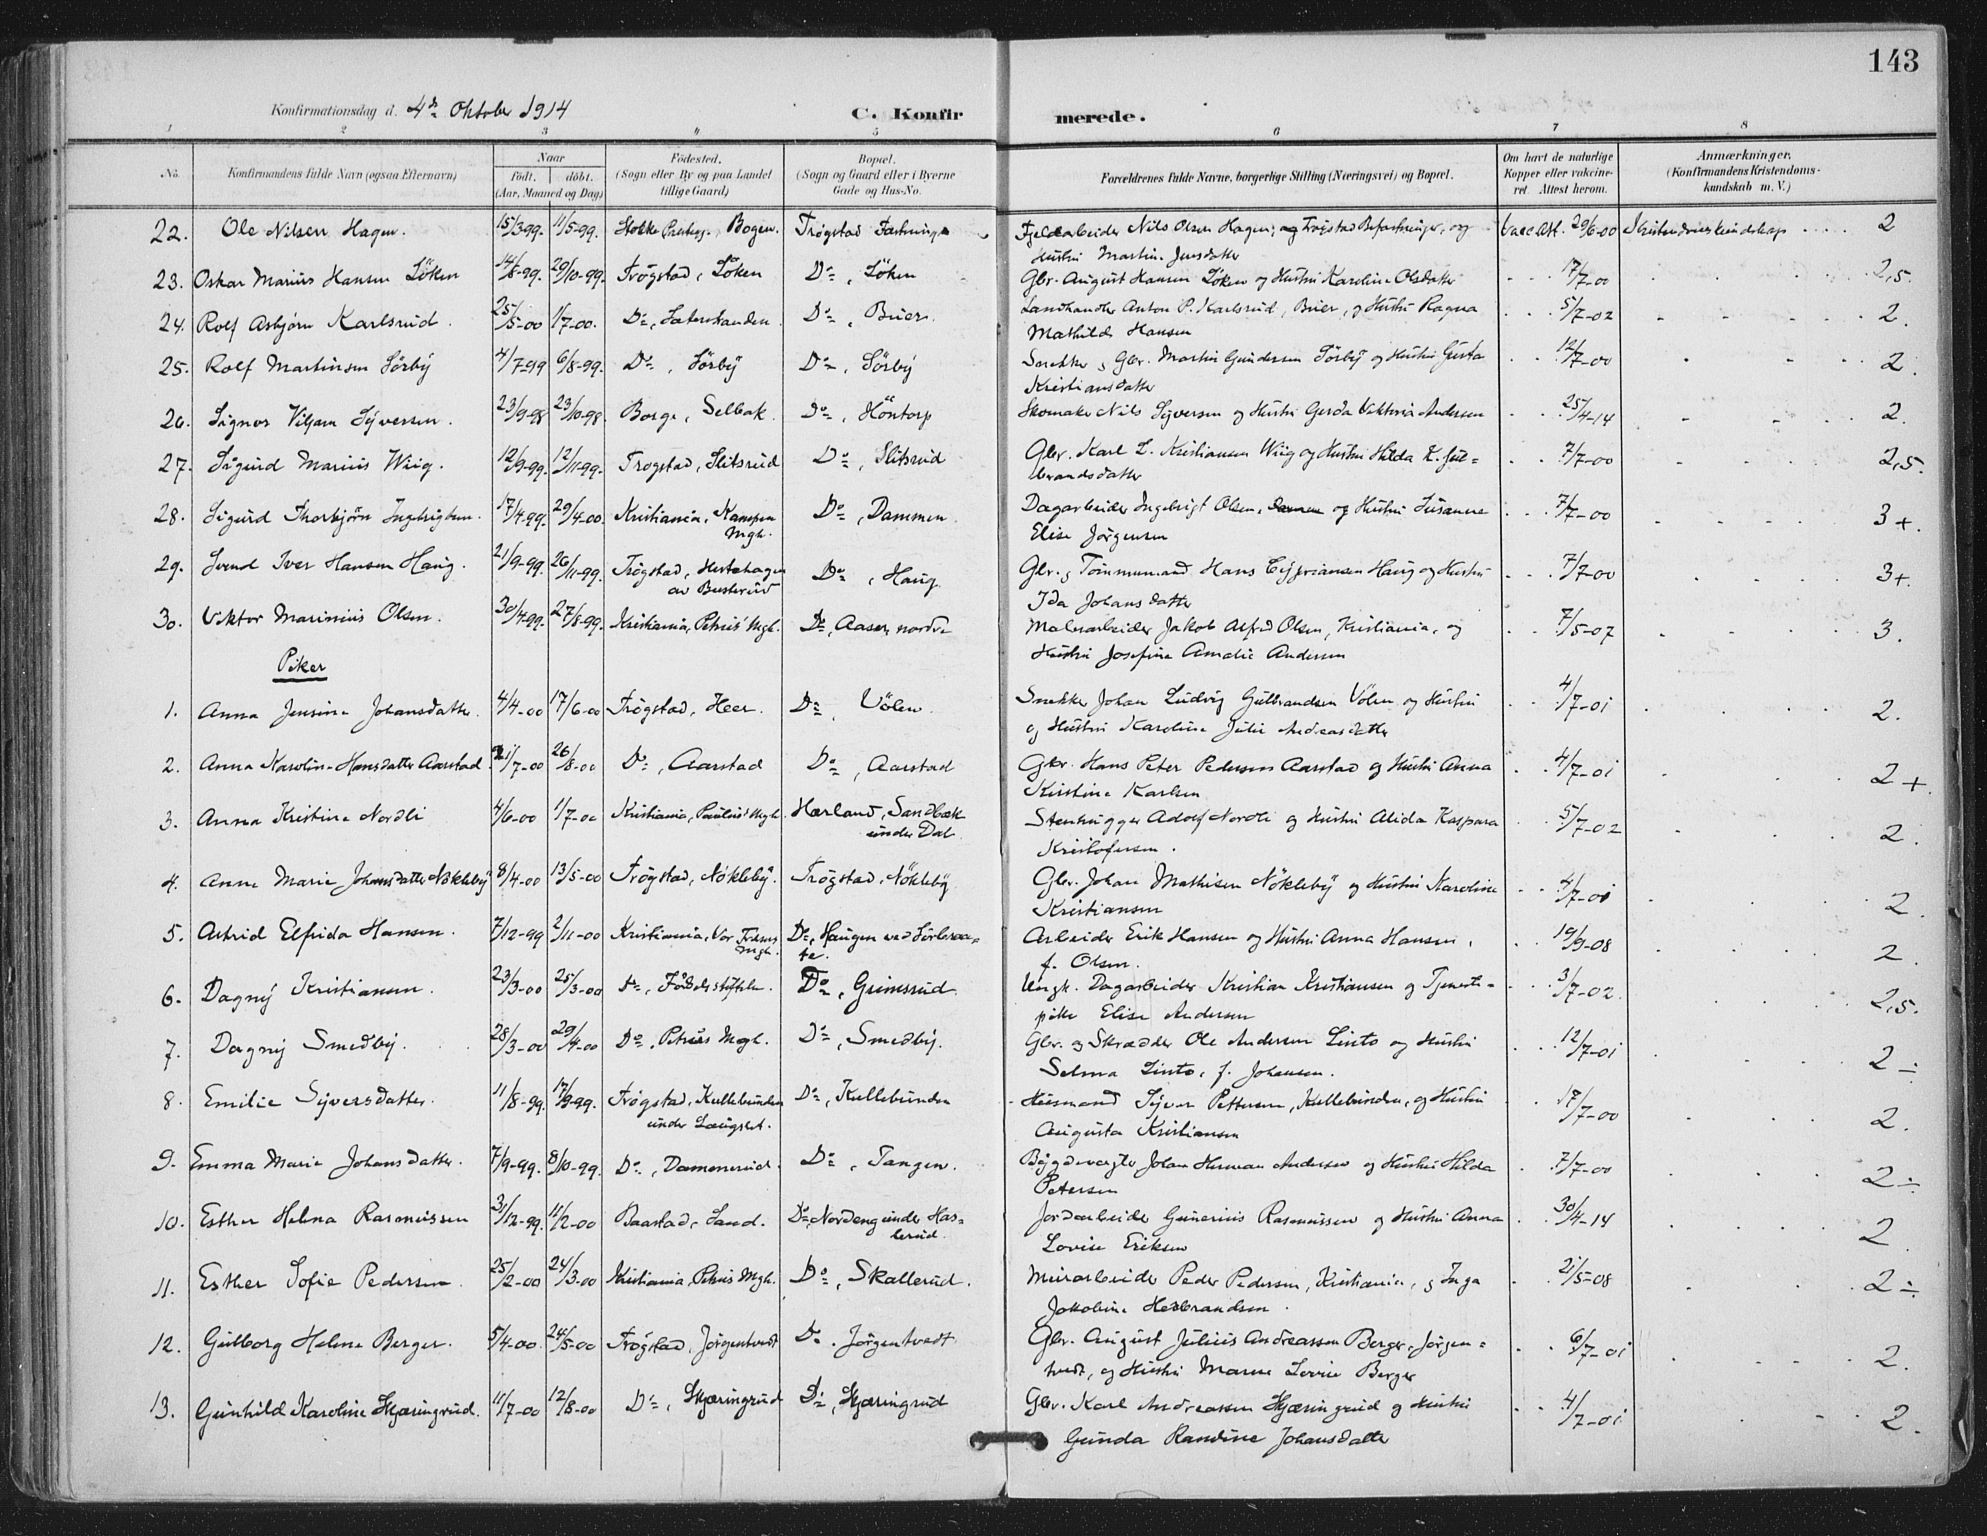 143
Konfirmationsdag d. 4de Oktober 1914
C. Konfirmerede.
1 2 3 4 5 6 7 8
No.
Konfirmandens fulde Navn (ogsaa Efternavn)
Naar
Födt. döbt.
(Aar, Maaned og Dag)
Födested.
(Sogn eller By og paa Landet
tillige Gaard)
Bopæl.
(Sogn og Gaard eller i Byerne
Gade og Hus-No.
Forældrenes fulde Navne, borgerlige Stilling (Næringsvei) og Bopæl.
Om havt de naturlige
Kopper eller vaccine-
ret. Attest herom.
Anmærkninger.
(Konfirmandens Kristendoms-
kundskab m. V.)
22. Ole Nilsen Hagen. 15/3-99. 11/5-99. Stokke Prestegj., Bogen. Trögstad Fæstning Fjeldarbeider Nils Olsen Hagen, Trögstad Befæstninger, og Vacc.Att. 29/6-00 Kristendomskundskap 2
Hustru Martine Jensdatter
23. Oskar Marius Hansen Löken 14/8-99. 29/10-99. Trögstad, Löken Do, Löken Gbr. August Hansen Löken og Hustru Karoline Olsdatter 17/7-00 2,5.
24. Rolf Asbjörn Karlsrud. 25/5-00 1/7-00. Do, Sæterstranden Do, Buer. Landhandler Anton P. Karlsrud, Buer, og Hustru Ragna 5/7-02 2.
Mathilde Hansen
25. Rolf Martinsen Sörby 4/7-99 6/8-99. Do, Sörby Do, Sörby Snekker og Gbr. Martin Gundersen Sörby og Hustru Gusta 12/7-00 2.
Kristiansdatter
26. Signor Viljam Syversen. 23/9-98 23/10-98. Borge, Selbak. Do, Höntorp Skomaker Nils Syversen og Hustru Gerda Viktoria Andersen 25/4-14 2.
27. Sigurd Marius Wiig. 12/9-99. 12/11-99. Trögstad, Slitsrud Do, Slitsrud Gbr. Karl L. Kristiansen Wiig og Hustru Hilda K. Gul=
brandsdatter 7/7-00 2,5.
28. Sigurd Thorbjörn Ingebrigtsen. 17/4-99. 29/4-00. Kristiania, Kampen Mgh. Do, Dammen. Dagarbeider Ingebrigt Olsen, og Hustru Susanne 7/7-00 3+.
Elise Jörgensen
29. Svend Iver Hansen Haug. 21/9-99. 26/11-99. Trögstad, Hestehagen Do, Haug. Gbr. og Tömmermand Hans Cyprianson Haug og Hustru 7/7-00 3+.
av Busterud
Ida Johansdatter
30. Viktor Marinius Olsen. 30/4-99. 27/8-99. Kristiania, Petrus' Mgh. Do, Aasen nordre Malerarbeider Jakob Alfred Olsen, Kristiania, og 7/5-07 3.
Hustru Josefine Amalie Andersen
Piker
1. Anna Jensine Johansdatter. 4/4-00 17/6-00 Trögstad, Heer. Do, Völen. Snekker Johan Ludvig Gulbrandsen Völen og Hustru 4/7-01 2.
og Hustru Karoline Julie Andreasdatter
2. Anna Karoline Hansdatter Aarstad 21/7-00 26/8-00 Do, Aarstad Do, Aarstad Gbr. Hans Peter Pedersen Aarstad og Hustru Anna 4/7-01 2+.
Kristine Karlsen
3. Anna Kristine Nordli 4/6-00 1/7-00 Kristiania, Paulus' Mgh. Hærland, Sandbæk Stenhugger Adolf Nordli og Hustru Alida Kaspara 5/7-02 2.
under Dal
Kristofersen.
4. Anne Marie Johansdatter Nökleby 8/4-00 13/5-00 Trögstad, Nökleby. Trögstad, Nökleby Gbr. Johan Mathisen Nökleby og Hustru Karoline 4/7-01 2.
Kristiansen
5. Astrid Elfrida Hansen. 7/12-99 2/11-00 Kristiania, Vor Frelsers Mgh. Do, Haugen ved Sörbraa=
te. Arbeider Erik Hansen og Hustru Anna Hansen, 19/9-08 2.
f. Olsen.
6. Dagny Kristiansen. 23/3-00 25/3-00 Do, Födselsstiftelse. Do, Grimsrud Ungk. Dagarbeider Kristian Kristiansen og Tjeneste- 3/7-02. 2,5.
pike Elise Andersen
7. Dagny Smedby. 28/3-00 29/4-00 Do, Petrus Mgh. Do, Smedby. Gbr. og Skrædder Ole Andersen Linto og Hustru 12/7-01 2÷
Selma Linto, f. Johansen.
8. Emilie Syversdatter. 11/8-99. 17/9-99. Trögstad, Kullebunden Do, Kullebunden Husmand Syver Pettersen, Kullebunden, og Hustru 17/7-00 2.
under Langslet.
Augusta Kristiansen
9. Emma Marie Johansdatter. 7/9-99. 8/10-99. Do, Dammerud. Do, Tangen. Bygdevægter Johan Herman Andersen og Hustru Hilda 7/7-00 2÷
Petersen
10. Esther Helena Rasmussen 31/12-99. 11/2-00 Baastad, Sand. Do, Nordeng under Has=
lerud. Jordarbeider Gunerius Rasmussen og Hustru Anna 30/4-14 2.
Lovise Eriksen
11. Esther Sofie Pedersen 25/2-00 24/3-00 Kristiania, Petrus Mgh. Do, Skallerud. Murarbeider Peder Pedersen, Kristiania, og Inga 21/5-08 2÷
Jakobine Herbrandsen.
12. Gulborg Helene Berger. 5/4-00. 24/5-00 Trögstad, Jörgentvedt Do. Jörgentvedt Gbr. August Julius Andreassen Berger, Jörgen= 6/7-01 2.
tvedt, og Hustru Maren Lovise Berger
13. Gunhild Karoline Skjæringrud. 11/7-00 12/8-00 Do, Skjæringrud Do, Skjæringrud Gbr. Karl Andreassen Skjæringrud og Hustru 4/7-01 2.
Gunda Randine Johansdatter